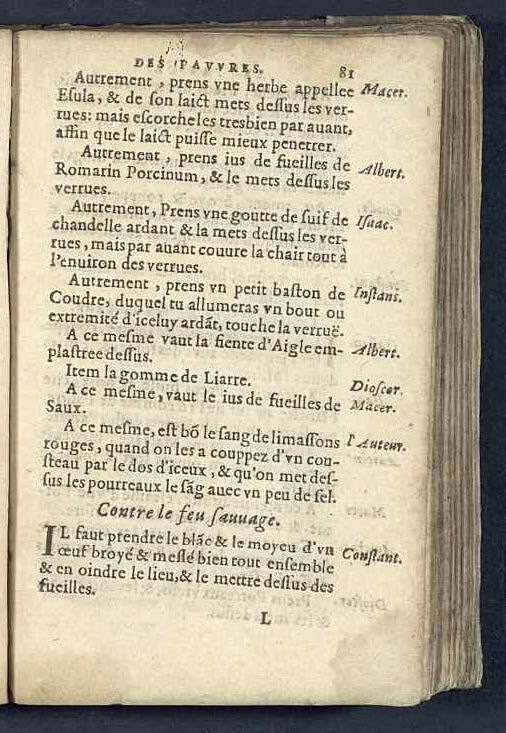 DES PAVVRES. 81
Autrement, prens vne herbe appellee Macer.
Esula, & de son laict mets dessus les ver-
rues: mais escorcheles tresbien par auant,
affin que le laict puisse mieux penetrer.
Autrement, prens ius de fueilles de Albert.
Romarin Porcinum, & le mets dessus les
verrues.
Autrement, Prens vne goutte de suif de Isaac.
chandelle ardant & la mets dessus les ver-
rues, mais par auant couure la chair tout à
l'enuiron des verrues.
Autrement, prens vn petit baston de Instans.
Coudre, duquel tu allumeras vn bout ou
extremité d'iceluy ardāt, touche la verruë.
A ce mesme vaut la fiente d'Aigle em- Albert.
plastree dessus.
Item la gomme de Liarre. Dioscor.
A ce mesme, vaut le ius de fueilles de Macer.
Saux.
A ce mesme, est bō le sang de limassons l'Auteur.
rouges, quand on les a couppez d'vn cou-
steau par le dos d'iceux, & qu'on met des-
sus les pourreaux le sāg auec vn peu de sel.
Contre le feu sauuage.
IL faut prendre le blāc & le moyeu d'vn Constant.
œuf broyé & meslé bien tout ensemble
& en oindre le lieu, & le mettre dessus des
fueilles.
L